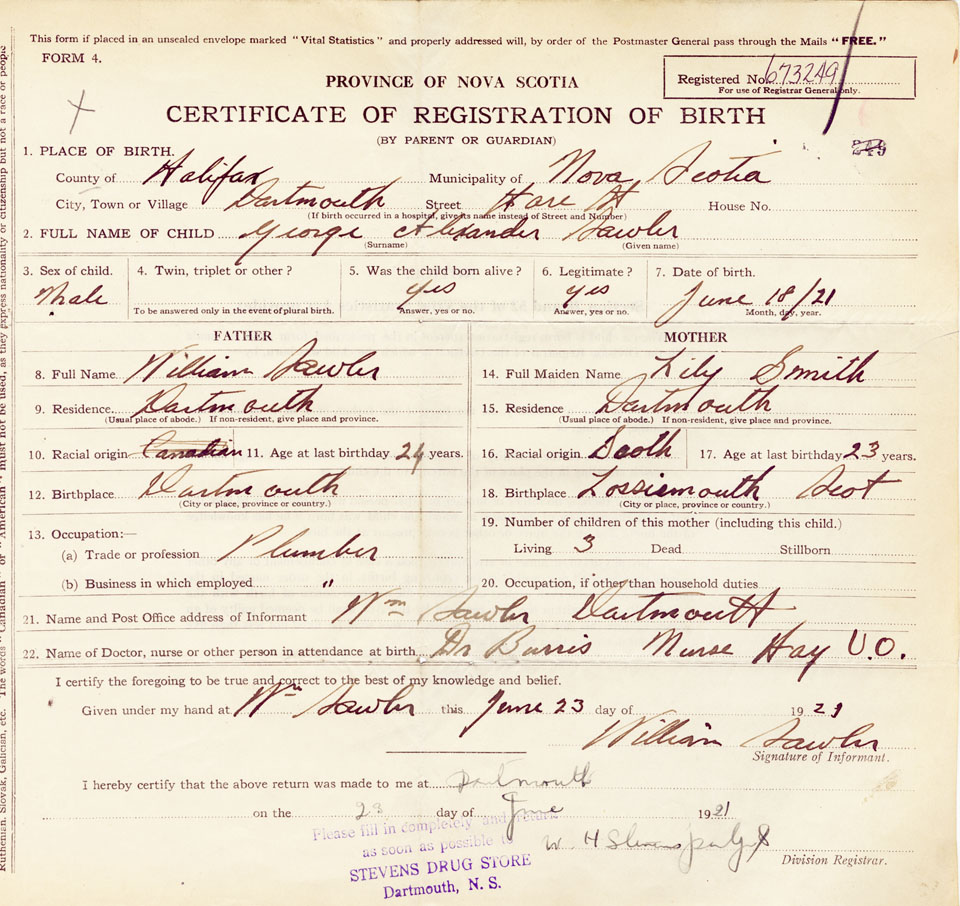 This form if placed in an unsealed envelope marked "Vital Statistics" and properly addressed will, by order of the Postmaster General pass through the Mails "FREE."
FORM 4.
PROVINCE OF NOVA SCOTIA
Registered No. 673249
For use of Registrar General only.
CERTIFICATE OF REGISTRATION OF BIRTH
(BY PARENT OR GUARDIAN)
249
1. PLACE OF BIRTH.
County of Halifax Municipality of Nova Scotia
City, Town or Village Dartmouth Street Hare St House No.
(If birth occurred in a hospital, give its name instead of Street and Number)
2. FULL NAME OF CHILD George Alexander Sawler
(Surname) (Given name)
3. Sex of child. 4. Twin, triplet or other? 5. Was the child born alive? 6. Legitimate? 7. Date of birth.
Male yes yes June 18/21
To be answered only in the event of plural birth. Answer, yes or no. Answer, yes or no. Month, day, year.
FATHER MOTHER
8. Full Name William Sawler 14. Full Maiden Name Lily Smith
9. Residence Dartmouth 15. Residence Dartmouth
(Usual place of abode.) If non-resident, give place and province. (Usual place of abode.) If non-resident, give place and province.
10. Racial origin Canadian 11. Age at last birthday 24 years. 16. Racial origin Scoth 17. Age at last birthday 23 years.
12. Birthplace Dartmouth 18. Birthplace Lossiemouth Scot
(City or place, province or country.) (City or place, province or country.)
19. Number of children of this mother (including this child.)
13. Occupation:—
(a) Trade or profession Plumber Living 3 Dead Stillborn
(b) Business in which employed " 20. Occupation, if other than household duties
21. Name and Post Office address of Informant Wm Sawler Dartmouth
22. Name of Doctor, nurse or other person in attendance at birth Dr Burris Nurse Hay V.O.
I certify the foregoing to be true and correct to the best of my knowledge and belief.
Given under my hand at Wm Sawler this June 23 day of 1921
William Sawler
Signature of Informant.
I hereby certify that the above return was made to me at Dartmouth
on the 23 day of June 1921
Please fill in completely and return
as soon as possible to
W H Stevens
STEVENS DRUG STORE
Division Registrar.
Dartmouth, N. S.
Ruthenian, Slovak, Galician, etc. The words "Canadian" or "American" must not be used, as they express nationality or citizenship but not a race or people